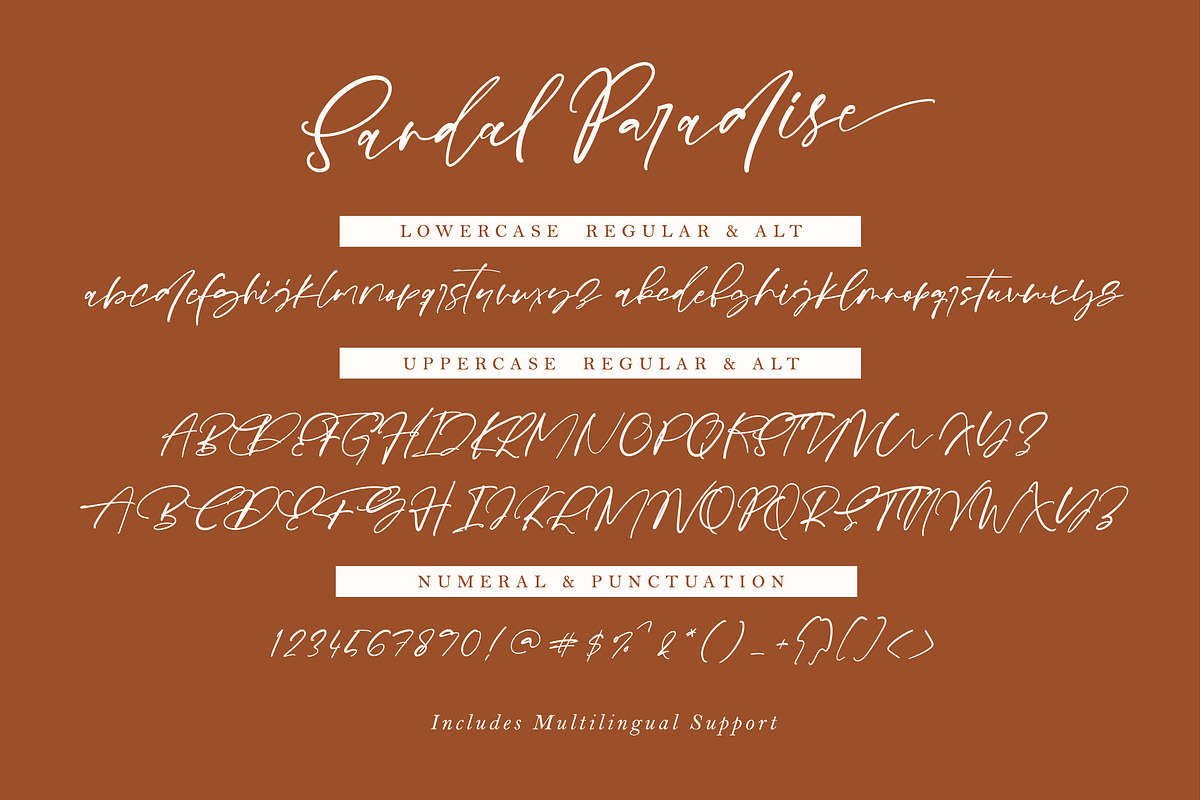 Sandal Paradise
LOWERCASE REGULAR & ALT
abcdefghijklmnopqrstuvwxyz abcdefghijklmnopqrstuvwxyz
UPPERCASE REGULAR & ALT
ABCDEFGHIJKLMNOPQRSTUVW XYZ
ABCDEFGHIJKLMNOPQRSTUVWXYZ
NUMERAL & PUNCTUATION
1234567890!@#$%^&*()_+{}[]<>
Includes Multilingual Support